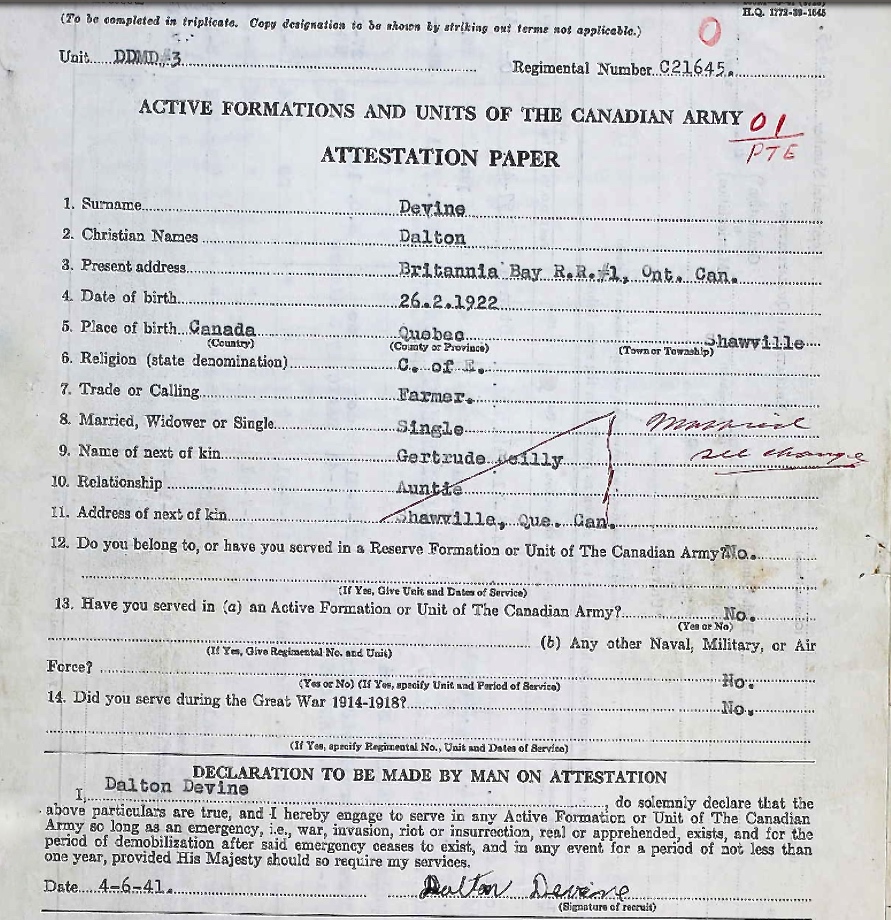 (To be completed in triplicate. Copy designation to be shown by striking out terms not applicable.)
H.Q. 1772-39-1645
O
Unit DDMD.#3 Regimental Number C21645.
ACTIVE FORMATIONS AND UNITS OF THE CANADIAN ARMY
01
PTE
ATTESTATION PAPER
1. Surname Devine
2. Christian Names Dalton
3. Present address Britannia Bay R.R.#1, Ont. Can.
4. Date of birth 26.2.1922
5. Place of birth Canada Quebec Shawville
(Country) (County or Province) (Town or Township)
6. Religion (state denomination) C. of E.
7. Trade or Calling Farmer.
8. Married, Widower or Single Single Married
9. Name of next of kin Gertrude see change
10. Relationship Auntie
11. Address of next of kin Shawville, Que. Can.
12. Do you belong to, or have you served in a Reserve Formation or Unit of The Canadian Army? No.
(If Yes, Give Unit and Dates of Service)
13. Have you served in (a) an Active Formation or Unit of The Canadian Army? No.
(Yes or No)
(b) Any other Naval, Military, or Air
(If Yes, Give Regimental No. and Unit)
Force? No.
(Yes or No) (If Yes, specify Unit and Period of Service)
14. Did you serve during the Great War 1914-1918? No.
(If Yes, specify Regimental No., Unit and Dates of Service)
DECLARATION TO BE MADE BY MAN ON ATTESTATION
I, Dalton Devine, do solemnly declare that the
above particulars are true, and I hereby engage to serve in any Active Formation or Unit of The Canadian
Army so long as an emergency, i.e., war, invasion, riot or insurrection, real or apprehended, exists, and for the
period of demobilization after said emergency ceases to exist, and in any event for a period of not less than
one year, provided His Majesty should so require my services.
Date 4-6-41. Dalton Devine
(Signature of recruit)